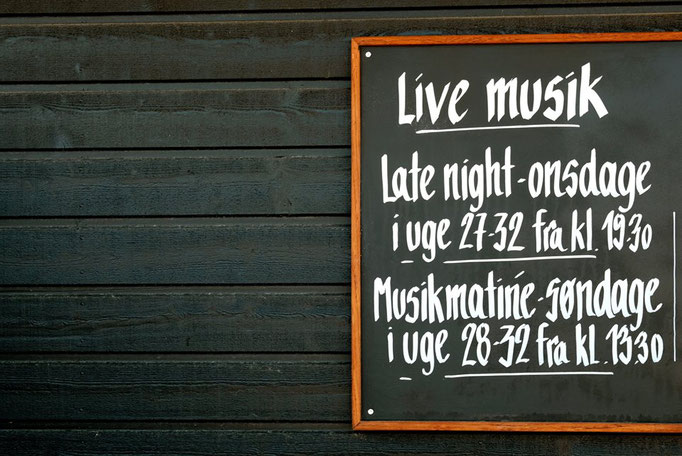 Live musik
Late night-onsdage
i uge 27-32 fra kl. 19.30
Musikmatiné-søndage
i uge 28-32 fra kl. 13.30